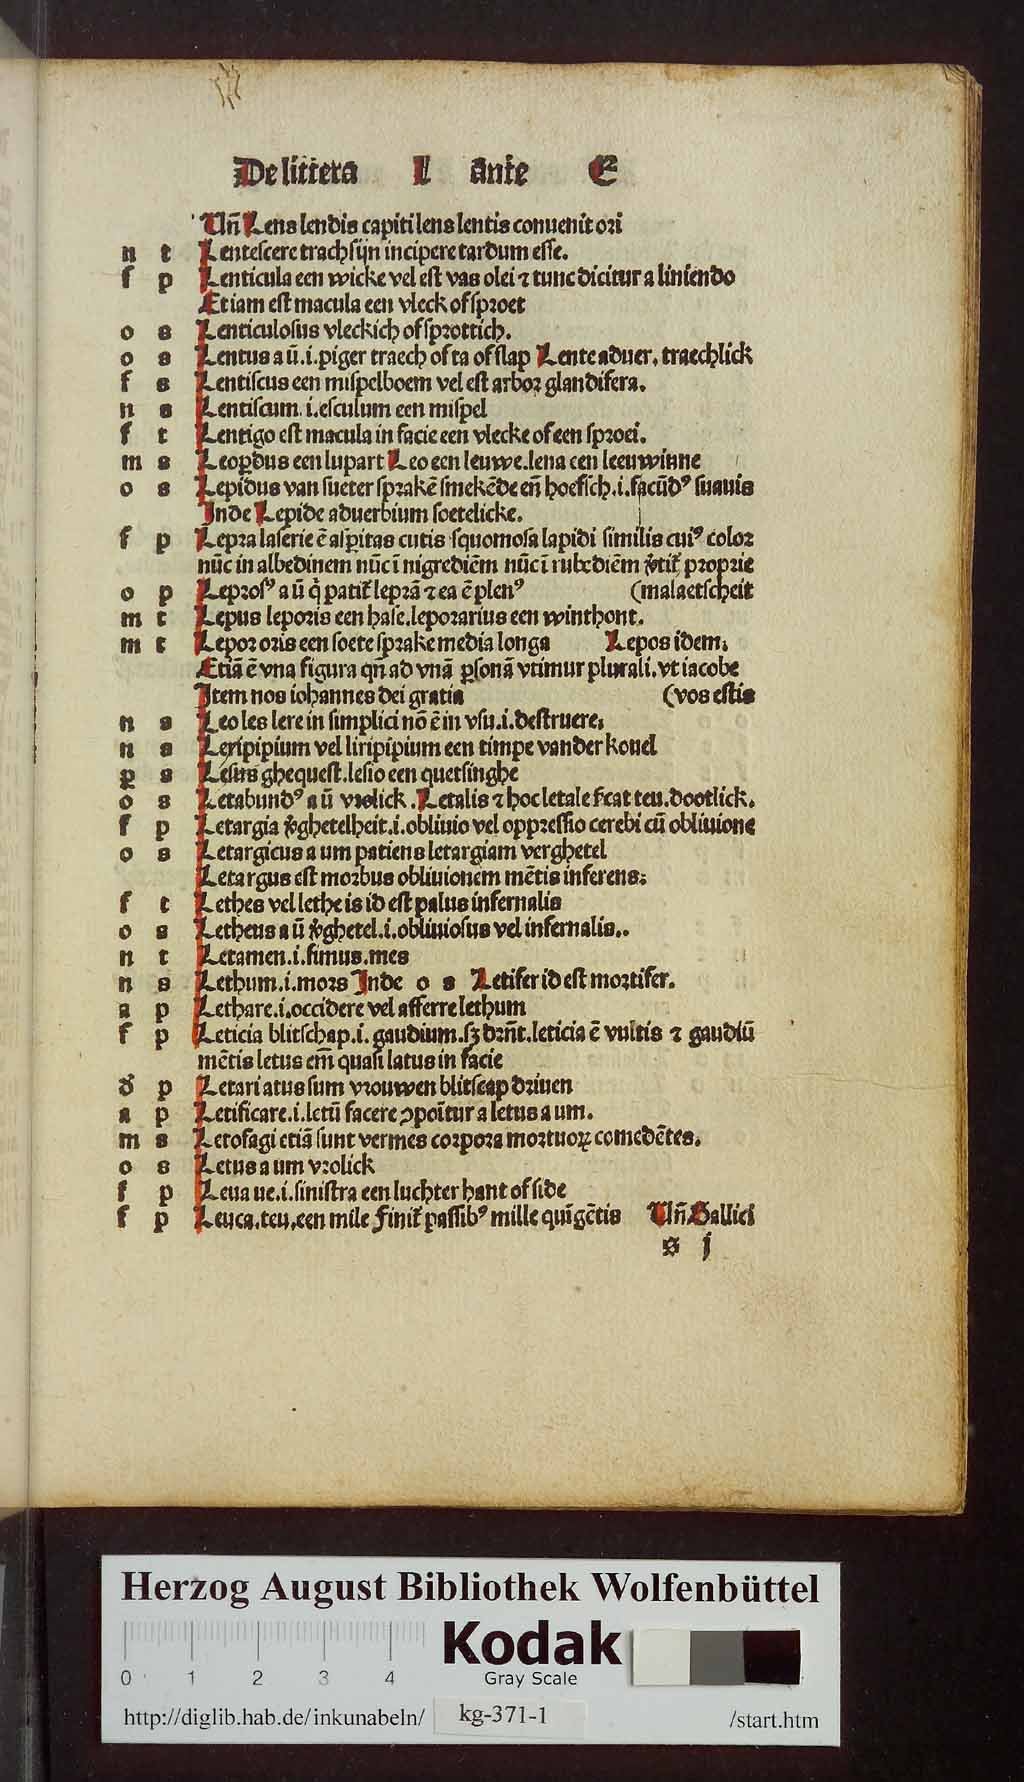 De littera L ante E
Vn̄ Lens lendis capiti lens lentis conuenit ori
n t Lentescere trach sijn incipere tardum esse.
f p Lenticula een wicke vel est vas olei ⁊ tunc dicitur a liniendo
Etiam est macula een vleck of sproet
o s Lenticulosus vleckich of sprottich.
o s Lentus a ū.i.piger traech of ta of slap Lente aduer. traechlick
f s Lentiscus een mispelboem vel est arbor glandifera.
n s Lentiscum.i.esculum een mispel
f t Lentigo est macula in facie een vlecke of een sproet.
m s Leoꝑdus een lupart Leo een leuwe.lena een leeuwinne
o s Lepidus van sueter sprakē smekēde en̄ hoefsch.i.facūdꝰ suauis
Inde Lepide aduerbium soetelicke.
f p Lepra laserie ē asꝑitas cutis squomosa lapidi similis cuiꝰ color
nūc in albedinem nūc ī nigrediēm nūc ī rubediēm v̓tit᷑ proprie
o p Leprosꝰ a ū q̇ patit᷑ leprā ⁊ ea ē plenꝰ (malaetscheit
m t Lepus leporis een hase.leporarius een winthont.
m t Lepor oris een soete sprake media longa Lepos idem.
Etiā ē vna figura qn̄ ad vnā ꝑsonā vtimur plurali.vt iacobe
Item nos iohannes dei gratia (vos estis
n s Leo les lere in simplici nō ē in vsu.i.destruere.
n s Leripipium vel liripipium een timpe vander kouel
ꝑ s Lesus ghequest.lesio een quetsinghe
o s Letabundꝰ a ū vrolick.Letalis ⁊ hoc letale ſcat teu.dootlick.
f p Letargia v̓ghetelheit.i.obliuio vel oppressio cerebi cū obliuione
o s Letargicus a um patiens letargiam verghetel
Letargus est morbus obliuionem mētis inferens.
f t Lethes vel lethe is id est palus infernalis
o s Letheus a ū v̓ghetel.i.obliuiosus vel infernalis..
n t Letamen.i.fimus.mes
n s Lethum.i.mors Inde o s Letifer id est mortifer.
a p Lethare.i.occidere vel afferre lethum
f p Leticia blitschap.i.gaudium.sꝫ drn̄t.leticia ē vultis ⁊ gaudiū
mētis letus em̄ quasi latus in facie
d̓ p Letari atus sum vrouwen blitscap driuen
a p Letificare.i.letū facere ↄpoītur a letus a um.
m s Letofagi etiā sunt vermes corpora mortuoꝝ comedētes.
o s Letus a um vrolick
f p Leua ue.i.sinistra een luchter hant of side
f p Leuca.teu.een mile finit᷑ passibꝰ mille quīgētis Vn̄ Gallici
s j
Herzog August Bibliothek Wolfenbüttel
0 1 2 3 4
Kodak
Gray Scale
http://diglib.hab.de/inkunabeln/ kg-371-1 /start.htm